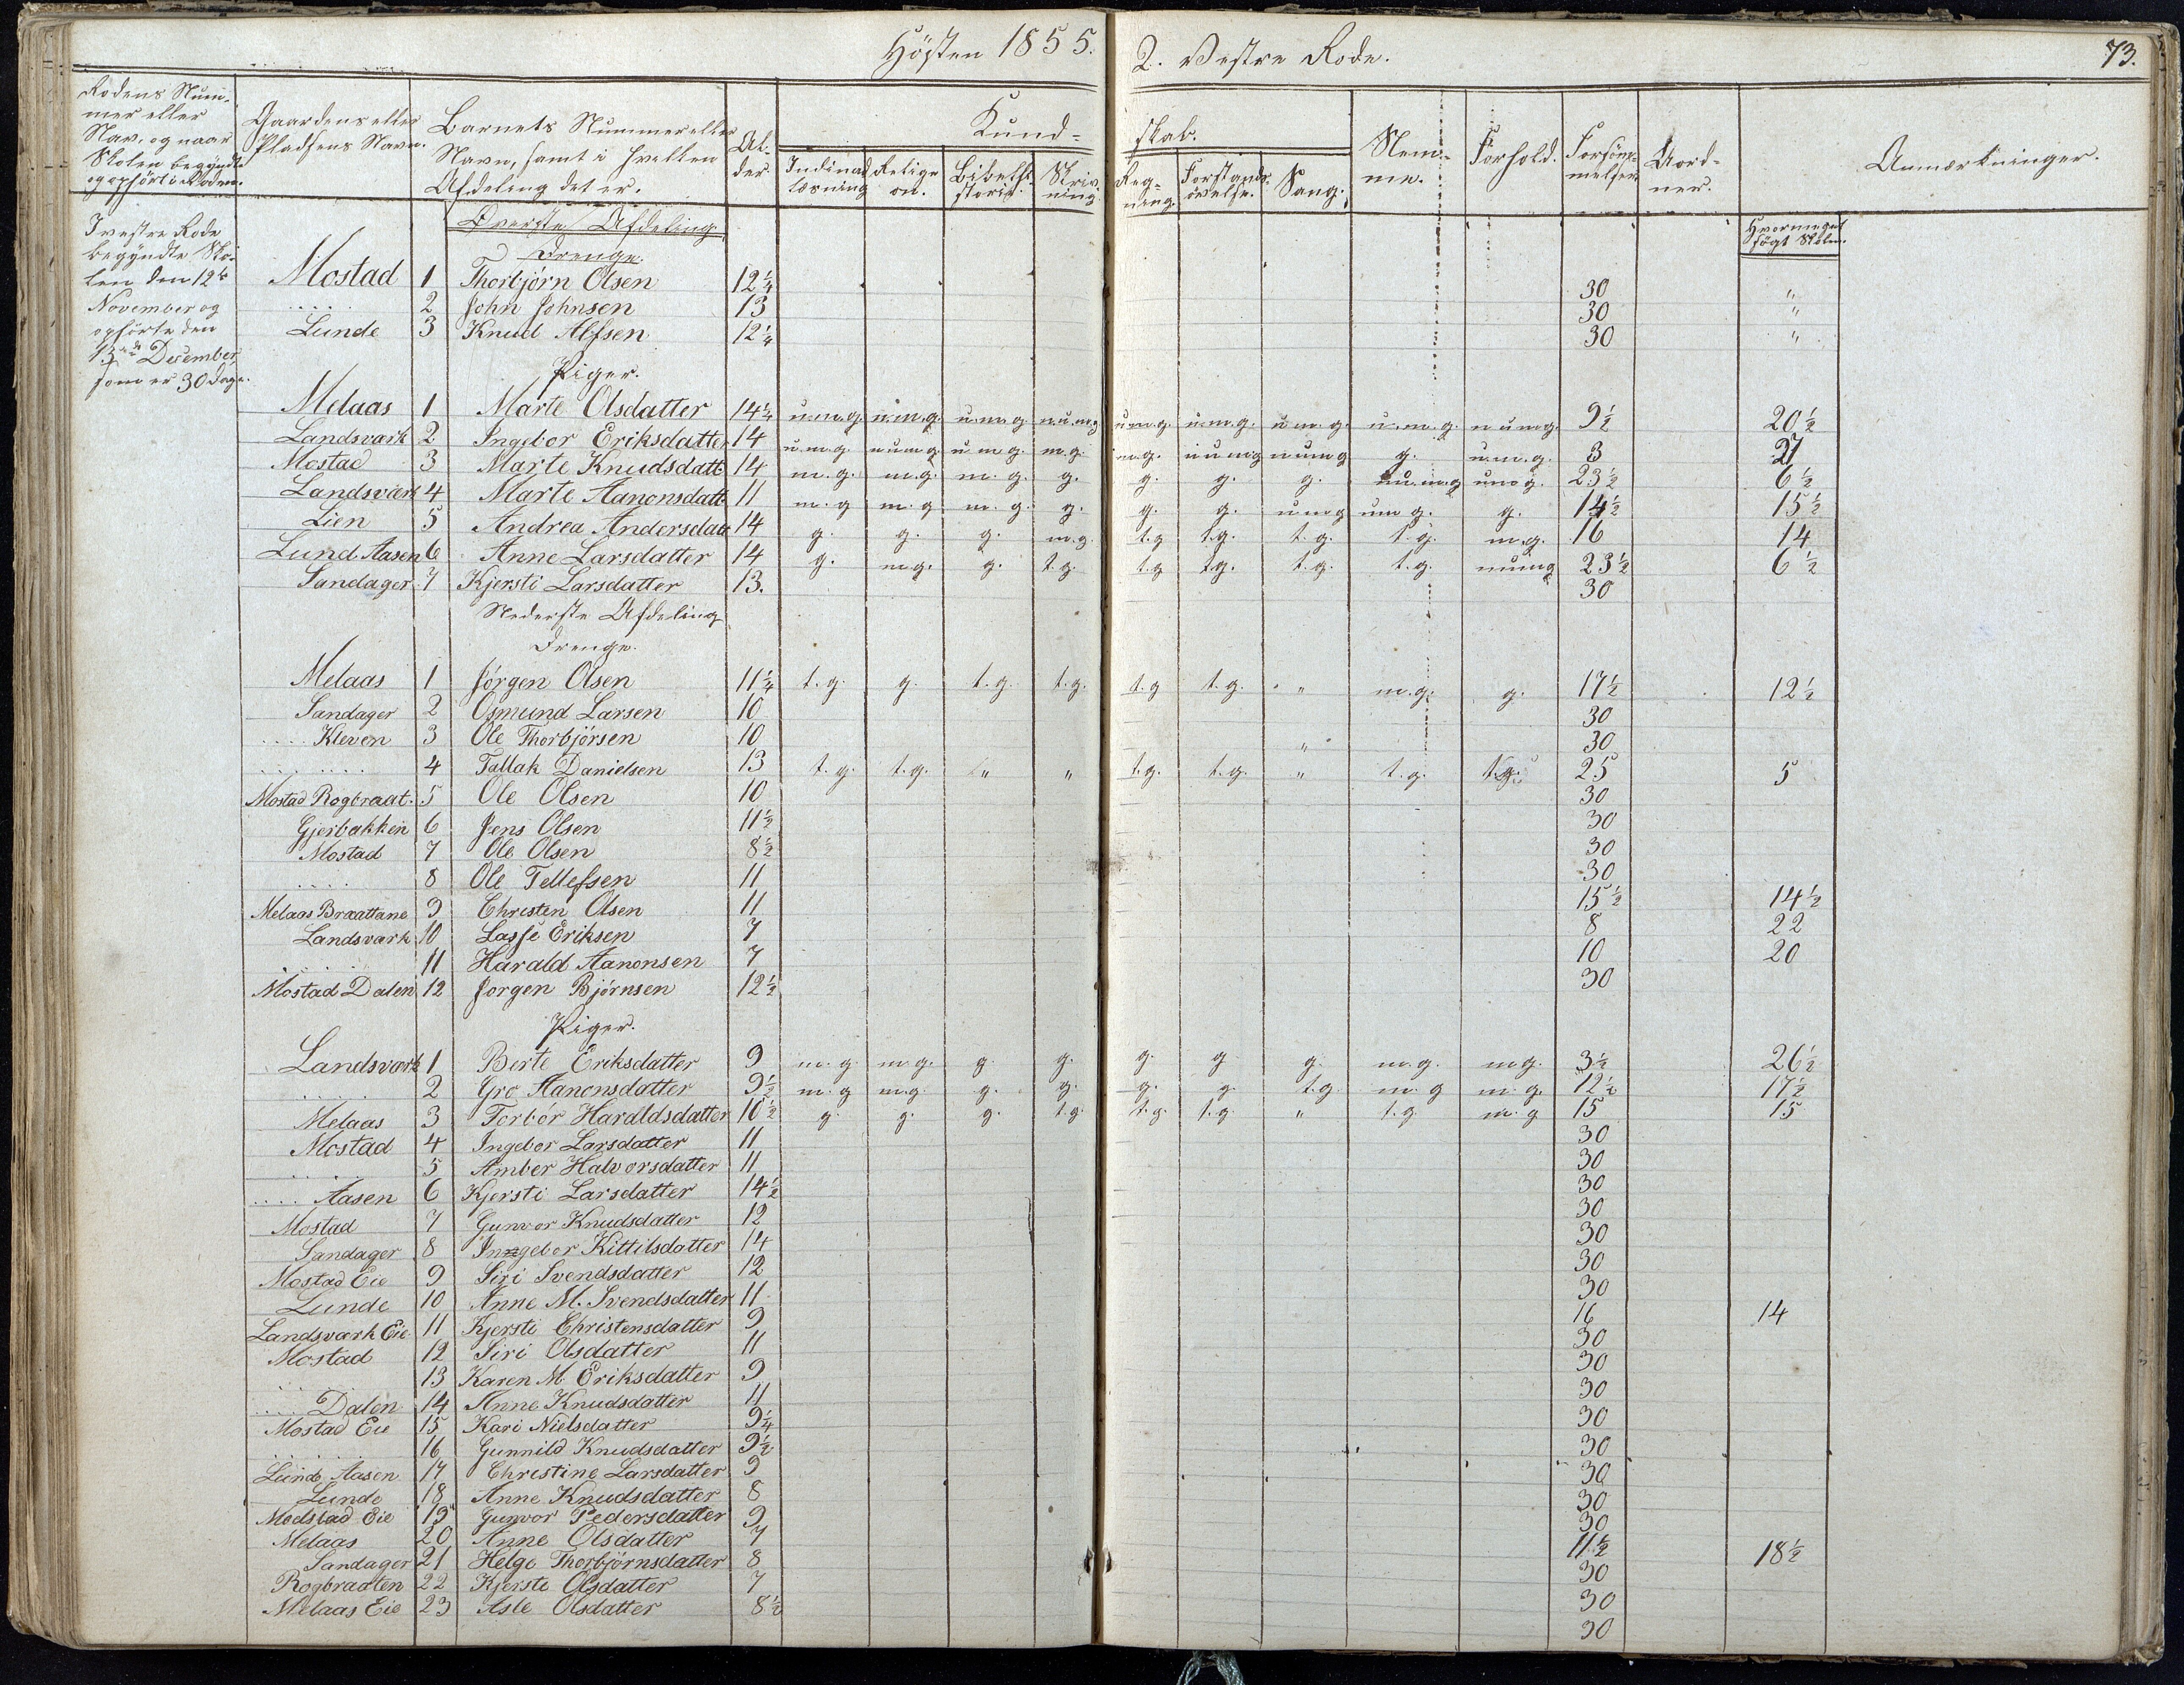 Hösten 1855. 2. Vestre Rode. 73.
Rodens Num-
mer eller
Nav, og naar
Skolen begyndte
og ophört i Roden.
Gaardens eller
Pladsens Navn.
Barnets Nummer eller
Navn, samt i hvilken
Afdeling det er.
Al-
der
Kund-
skab.
Indenad
læsning
Religi
on.
Bibelhi-
storie.
Skriv-
ning.
Reg-
ning.
Forstands-
övelse.
Sang.
Nem-
me.
Forhold.
Forsöm-
melser.
Uord-
ner.
Anmærkninger.
Hvormeget
sögt Skolen.
I vestre Rode
begyndte Sko-
len den 12te
November og
ophörte den
13nde December,
som er 30 Dage.
Överste Afdeling
Drenge.
Mostad 1 Thorbjörn Olsen 12 1/4 30 "
.... 2 John Johnsen 13 30 "
Lunde 3 Knud Alfsen 12 1/4 30 "
Piger.
Melaas 1 Marte Olsdatter 14 1/4 u.m.g. u.m.g. u.m.g. n.u.m.g u.m.g. u.m.g. u.m.g. u.m.g. n u m g. 9 1/2 20 1/2
Landsvark 2 Ingebor Eriksdatter 14 u.m.g. n u m g. u m g. m.g. m.g. n u m g n u m g g. u.m.g. 3 27
Mostad 3 Marte Knudsdatt 14 m.g. m.g. m.g. g. g. g. g. n u.m.g u m g. 23 1/2 6 1/2
Landsvark 4 Marte Aanonsdatt 11 m.g m.g. m.g. g. g. g. u m g u m g. g. 14 1/2 15 1/2
Lien 5 Andrea Andersdatt 14 g. g. g. m.g. t.g t.g. t.g. t.g. m.g. 16 14
Lund Aasen 6 Anne Larsdatter 14 g. m.g. g. t.g. t.g t.g. t.g. t.g. n u m g 23 1/2 6 1/2
Sandager 7 Kjersti Larsdatter 13. 30
Nederste Afdeling
Drenge.
Melaas 1 Jörgen Olsen 11 1/4 t.g. g. t.g. t.g. t.g t.g. " m.g. g. 17 1/2 12 1/2
Sandager 2 Osmund Larsen 10 30
.... Kleven 3 Ole Thorbjörsen 10 " 30
.... .... 4 Tallak Danielsen 13 t.g. t.g. " " t.g. t.g. " t.g. t.g. 25 5
Mostad Rogbraat. 5 Ole Olsen 10 30
Gjerbakken 6 Jens Olsen 11 1/2 30
Mostad 7 Ole Olsen 8 1/2 30
.... 8 Ole Tellefsen 11 30
Melaas Braattane 9 Christen Olsen 11 15 1/2 14 1/2
Landsvark 10 Lasse Eriksen 7 8 22
.... 11 Harald Aanonsen 7 10 20
Mostad Dalen 12 Jorgen Björnsen 12 1/2 30
Piger.
Landsvark 1 Berte Eriksdatter 9 m.g m.g. g. g. g. g g. m.g. m.g. 3 1/2 26 1/2
.... 2 Gro Aanonsdatter 9 1/2 m.g m.g g. g. g. g. t.g. m.g m.g. 12 1/2 17 1/2
Melaas 3 Torbór Haraldsdatter 10 1/2 g. g. g. t.g. t.g. t.g. " t.g. m.g 15 15
Mostad 4 Ingebor Larsdatter 11 30
.... 5 Amber Halvorsdatter 11 30
.... Aasen 6 Kjersti Larsdatter 14 1/2 30
Mostad 7 Gunvor Knudsdatter 12 30
Sandager 8 Inngebor Kittilsdatter 14 30
Mostad Eie 9 Siri Svendsdatter 12 30
Lunde 10 Anne M. Svendsdatter 11 30
Landsvark Eie 11 Kjersti Christensdatter 9 16 14
Mostad 12 Siri Olsdatter 11 30
.... 13 Karen M Eriksdatter 9 30
.... Dalen 14 Anne Knudsdatter 11 30
Mostad Eie 15 Kari Nielsdatter 9 1/4 30
.... 16 Gunnild Knudsdatter 9 1/2 30
Lunde Aasen 17 Christine Larsdatter 9 30
Lunde 18 Anne Knudsdatter 8 30
Modstad Eie 19 Gunvor Pedersdatter 9 30
Melaas 20 Anne Olsdatter 7 11 1/2 18 1/2
Sandager 21 Helge Thorbjörnsdatter 8 30
Rogbraaten 22 Kjersti Olsdatter 7 30
Melaas Eie 23 Asle Olsdatter 8 1/2 30